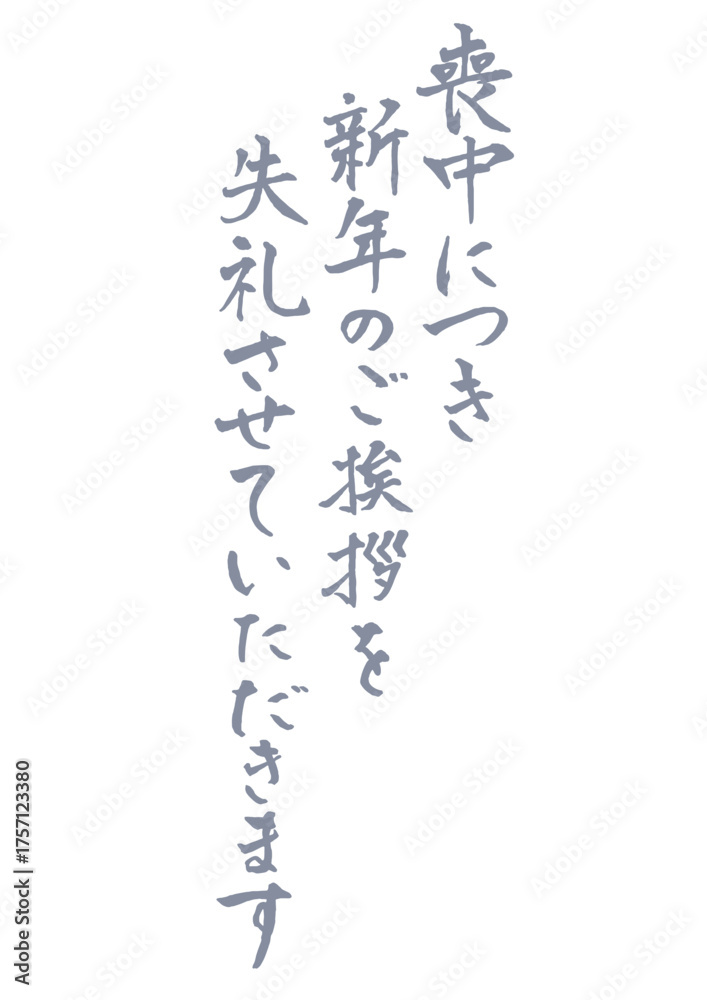 喪中につき
新年のご挨拶を
失礼させていただきます
Adobe Stock | #1757123380
Adobe Stock